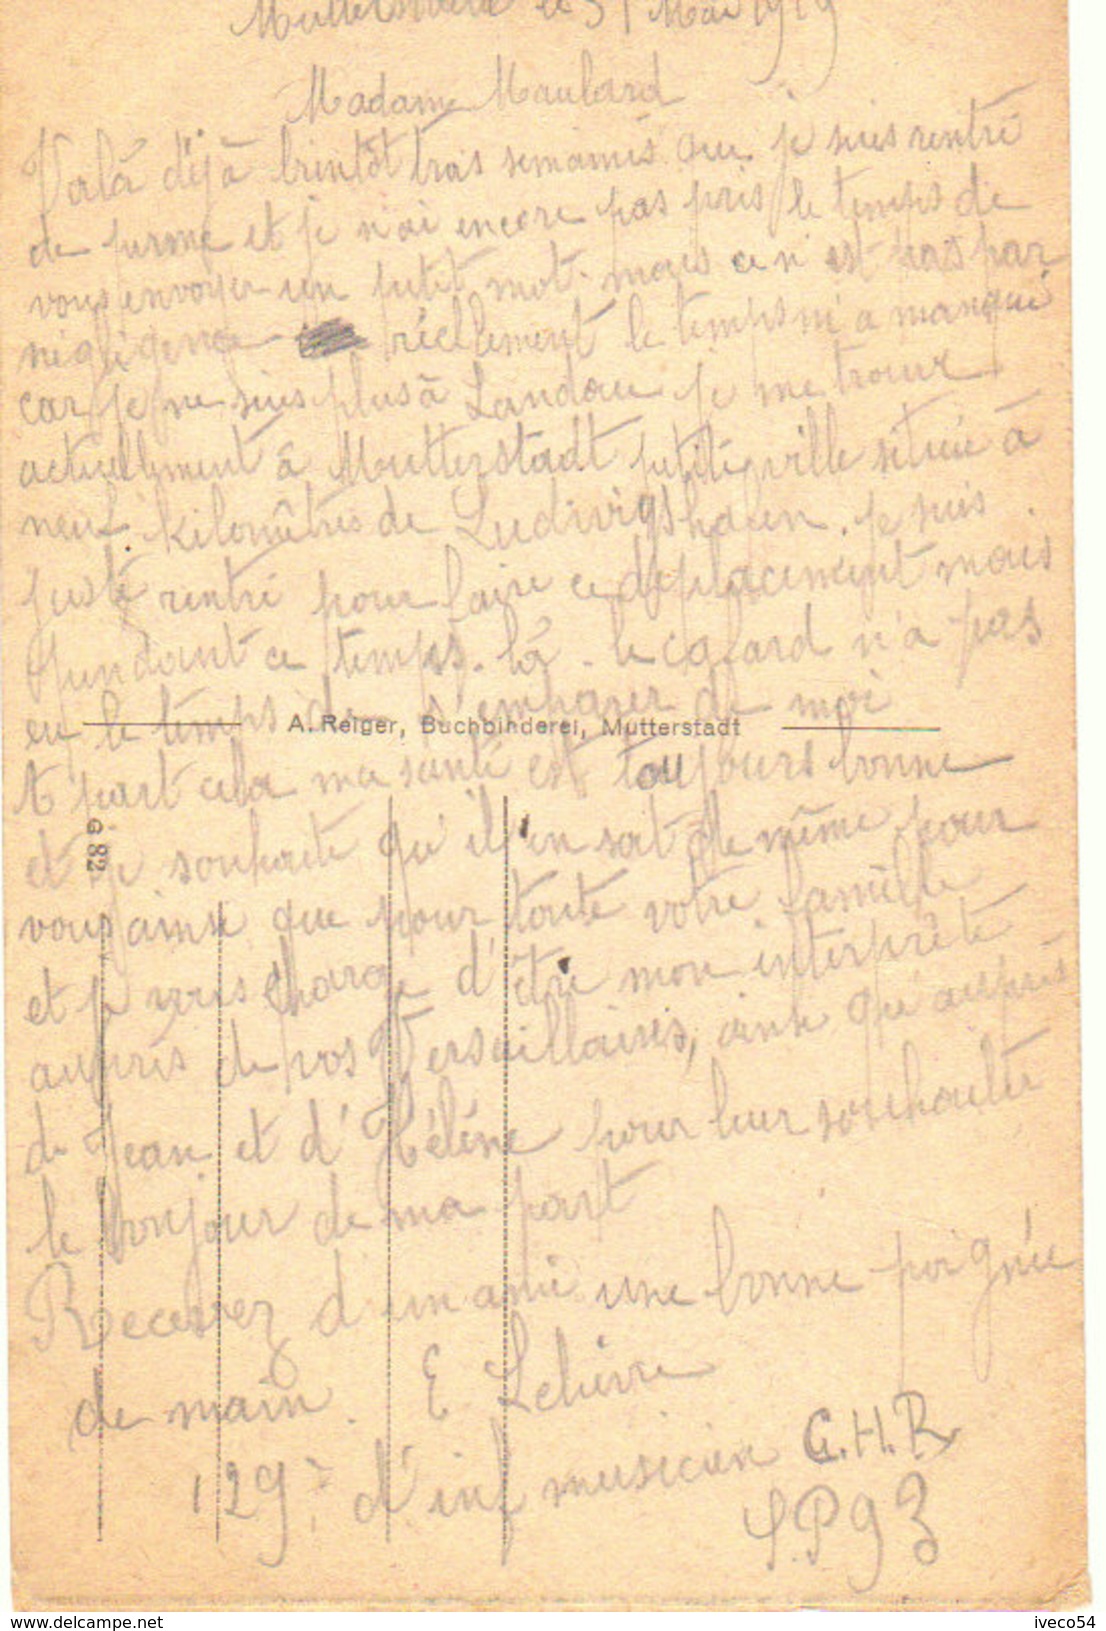 Mutterstadt le 31 Mai 1919
Madame Maulard
Voilà déjà bientôt trois semaines que je suis rentré
de perme et je n'ai encore pas pris le temps de
vous envoyer un petit mot. mais ce n'est pas par
négligence réellement le temps m'a manqué
car je ne suis plus à Landau je me trouve
actuellement à Mutterstadt petite ville située à
neuf kilomètres de Ludivigshafen. je suis
juste rentré pour faire ce déplacement mais
pendant ce temps-là le cafard n'a pas
eu le temps de s'emparer de moi
A. Reiger, Buchbinderei, Mutterstadt
A part cela ma santé est toujours bonne
et je souhaite qu'il en soit de même pour
G 82
vous ainsi que pour toute votre famille
et je vous charge d'être mon interprète
auprès de vos Versaillaises, ainsi qu'auprès
de Jean et d'Hélène pour leur souhaiter
le bonjour de ma part
Recevez d'un ami une bonne poignée
de main. E Lelièvre
129e d'inf musicien C.H.R
S.P 93
iveco54